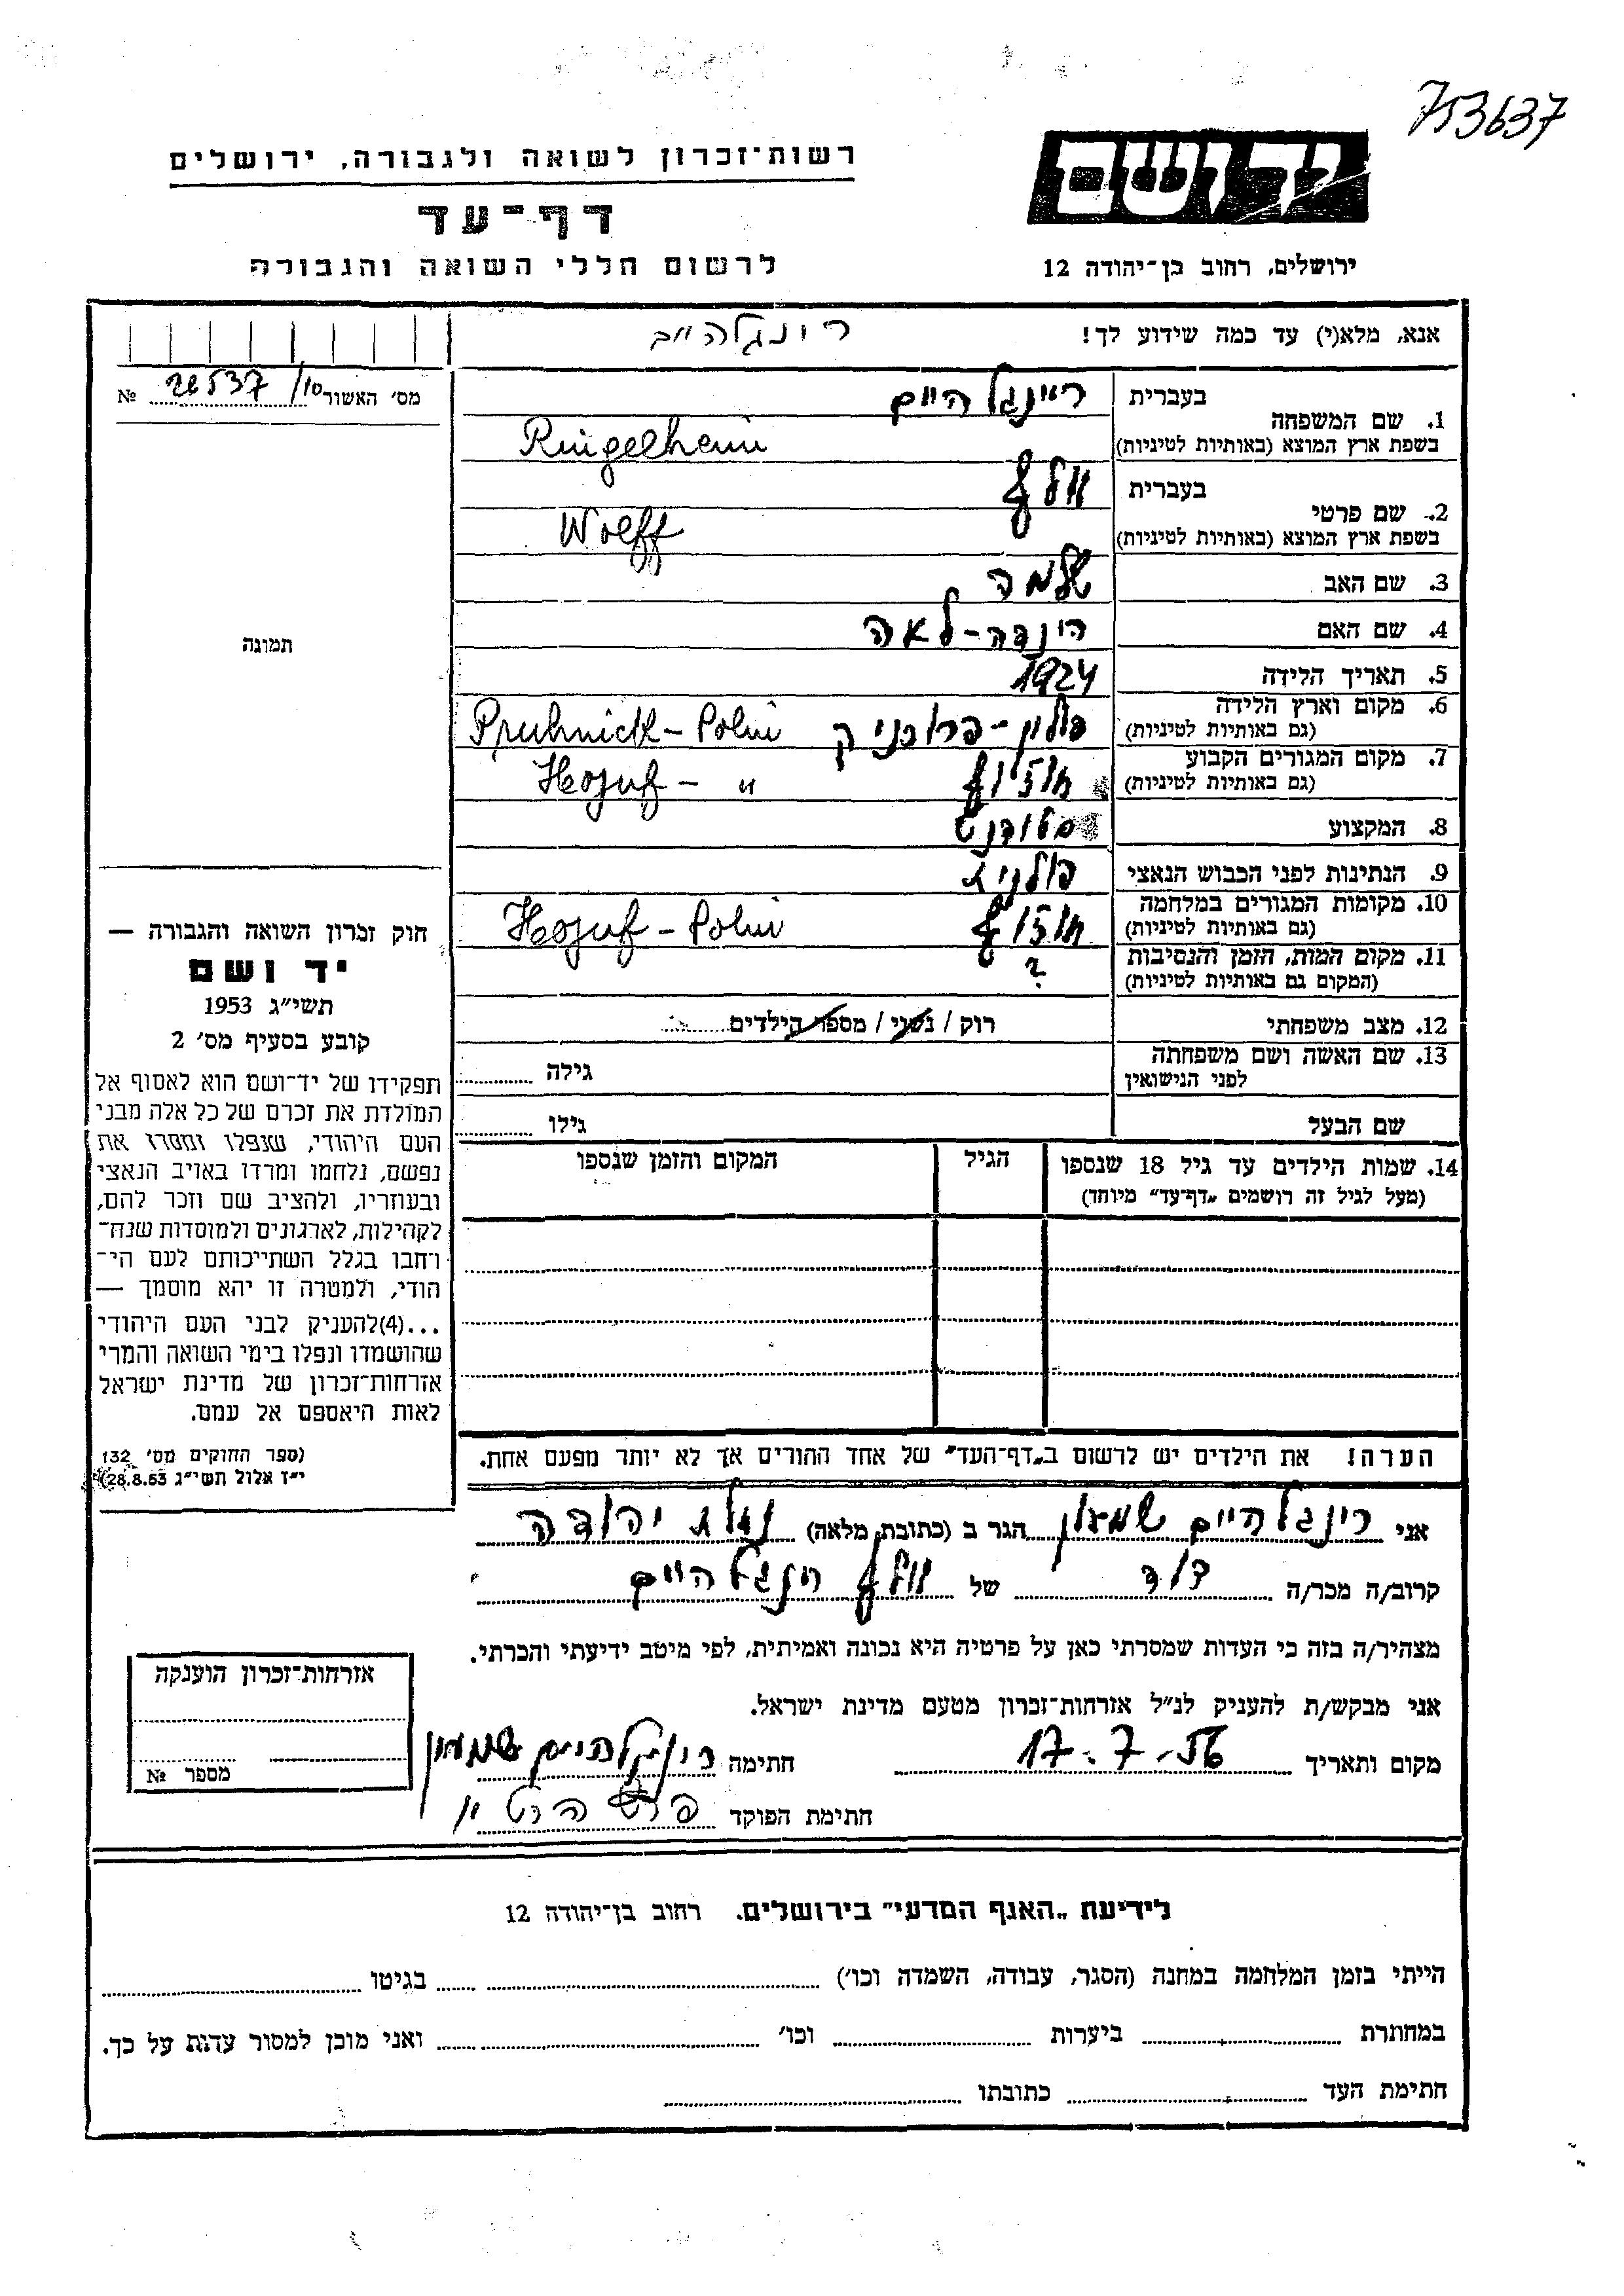 753637
יד ושם
רשות־זכרון לשואה ולגבורה, ירושלים
דף־עד
לרשום חללי השואה והגבורה
ירושלים, רחוב בן־יהודה 12
אנא, מלא(י) עד כמה שידוע לך!
רינגלהיים
מס׳ האשור 28537/10 №
1. שם המשפחה
בעברית רינגלהיים
בשפת ארץ המוצא (באותיות לטיניות) Ringelheim
2. שם פרטי
בעברית וולף
בשפת ארץ המוצא (באותיות לטיניות) Wolff
3. שם האב שלמה
4. שם האם הינדה-לאה
5. תאריך הלידה 1924
6. מקום וארץ הלידה
(גם באותיות לטיניות) פולין-פרוכניק Pruhnick-Polni
7. מקום המגורים הקבוע
(גם באותיות לטיניות) Hojuf- "
8. המקצוע סטודנט
9. הנתינות לפני הכבוש הנאצי פולנית
10. מקומות המגורים במלחמה
(גם באותיות לטיניות) Hojuf-Polni
11. מקום המות, הזמן והנסיבות ?
(המקום גם באותיות לטיניות)
12. מצב משפחתי רוק / נשוי / מספר הילדים
13. שם האשה ושם משפחתה
לפני הנישואין
גילה
שם הבעל גילו
14. שמות הילדים עד גיל 18 שנספו
(מעל לגיל זה רושמים „דף־עד” מיוחד)
הגיל
המקום והזמן שנספו
הערה! את הילדים יש לרשום ב„דף־העד” של אחד ההורים אך לא יותר מפעם אחת.
תמונה
חוק זכרון השואה והגבורה —
יד ושם
תשי״ג 1953
קובע בסעיף מס׳ 2
תפקידו של יד־ושם הוא לאסוף אל
המולדת את זכרם של כל אלה מבני
העם היהודי, שנפלו ומסרו את
נפשם, נלחמו ומרדו באויב הנאצי
ובעוזריו, ולהציב שם וזכר להם,
לקהילות, לארגונים ולמוסדות שנח־
רבו בגלל השתייכותם לעם הי־
הודי, ולמטרה זו יהא מוסמך —
...(4)להעניק לבני העם היהודי
שהושמדו ונפלו בימי השואה והמרי
אזרחות־זכרון של מדינת ישראל
לאות היאספם אל עמם.
(ספר החוקים מס׳ 132
י״ז אלול תשי״ג 28.8.53)
אני רינגלהיים שמעון הגר ב (כתובת מלאה) נולת יהודה
קרוב/ה מכר/ה דוד של וולף רינגלהיים
מצהיר/ה בזה כי העדות שמסרתי כאן על פרטיה היא נכונה ואמיתית, לפי מיטב ידיעתי והכרתי.
אני מבקש/ת להעניק לנ״ל אזרחות־זכרון מטעם מדינת ישראל.
מקום ותאריך 17.7.56 חתימה רינגלהיים שמעון
חתימת הפוקד
אזרחות־זכרון הוענקה
מספר №
לידיעת „האגף המדעי” בירושלים. רחוב בן־יהודה 12
הייתי בזמן המלחמה במחנה (הסגר, עבודה, השמדה וכו׳) בגיטו
במחתרת ביערות וכו׳ ואני מוכן למסור עדות על כך.
חתימת העד כתובתו